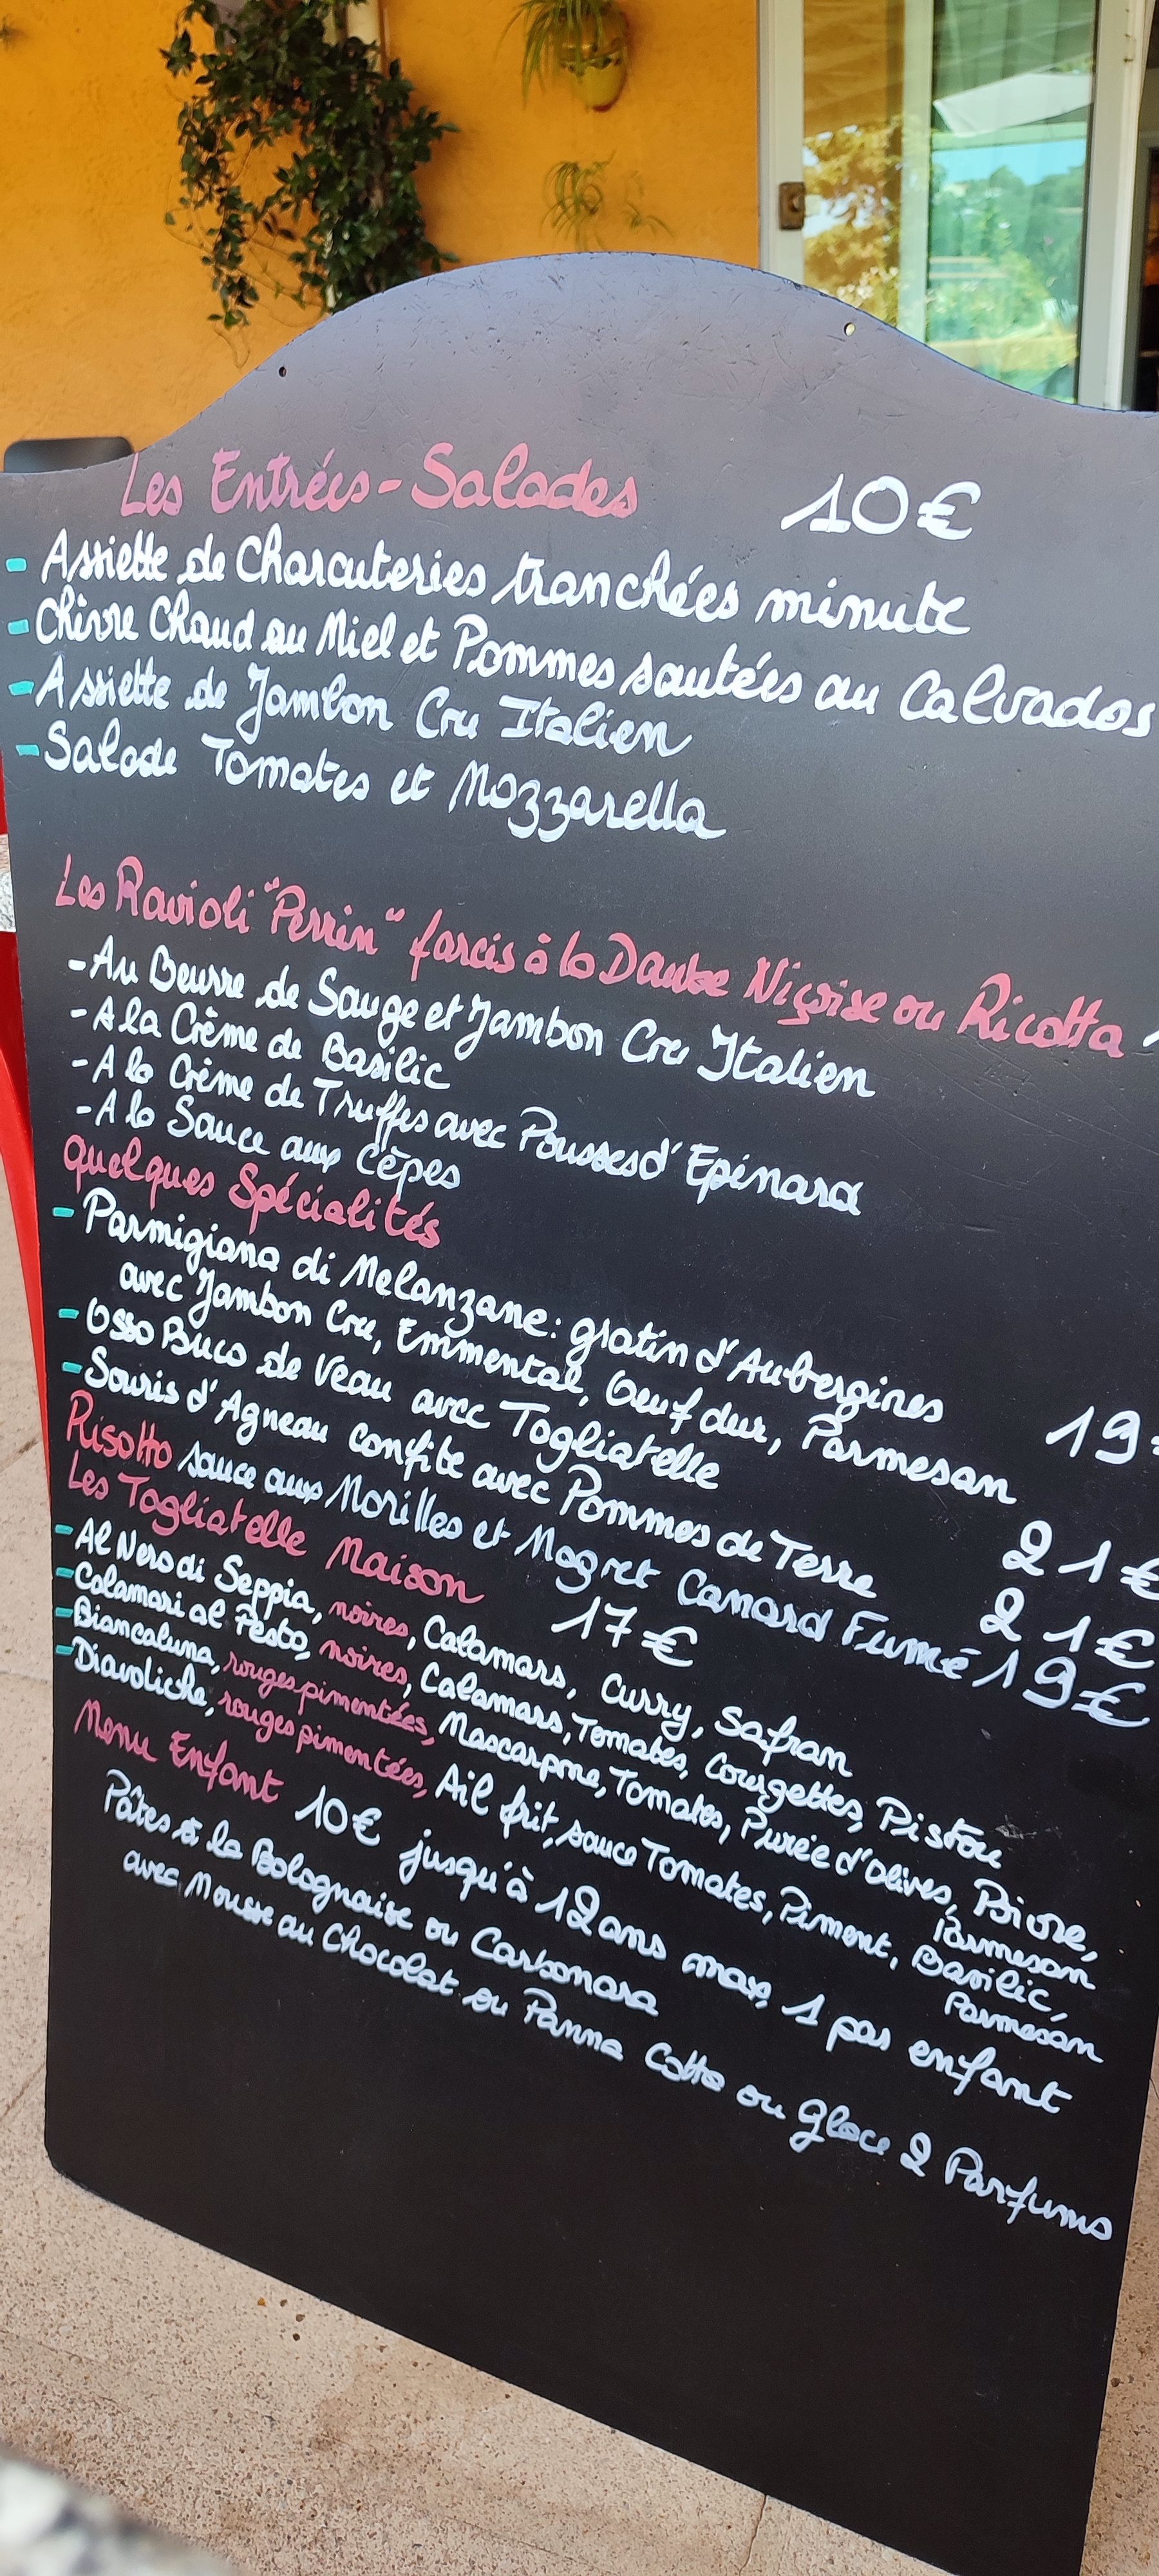 Les Entrées-Salades 10€
- Assiette de Charcuteries tranchées minute
- Chèvre Chaud au Miel et Pommes sautées au Calvados
- Assiette de Jambon Cru Italien
- Salade Tomates et Mozzarella
Les Ravioli "Perrin" farcis à la Daube Niçoise ou Ricotta
- Au Beurre de Sauge et Jambon Cru Italien
- A la Crème de Basilic
- A la Crème de Truffes avec Pousses d'Epinard
- A la Sauce aux Cèpes
Quelques Spécialités
- Parmigiana di Melanzane: gratin d'Aubergines
avec Jambon Cru, Emmental, Oeuf dur, Parmesan 19
- Osso Buco de Veau avec Tagliatelle 21€
- Souris d'Agneau confite avec Pommes de Terre 21€
Risotto sauce aux Morilles et Magret Canard Fumé 19€
Les Tagliatelle Maison 17€
- Al Nero di Seppia, noires, Calamars, Curry, Safran
- Calamari al Pesto, noires, Calamars, Tomates, Courgettes, Pistou
- Biancaluna, rouges pimentées, Mascarpone, Tomates, Purée d'Olives, Poivre,
Parmesan
- Diavoliche, rouges pimentées, Ail frit, sauce Tomates, Piment, Basilic,
Parmesan
Menu Enfant 10€ jusqu'à 12 ans max, 1 par enfant
Pâtes à la Bolognaise ou Carbonara
avec Mousse au Chocolat ou Panna Cotta ou Glace 2 Parfums